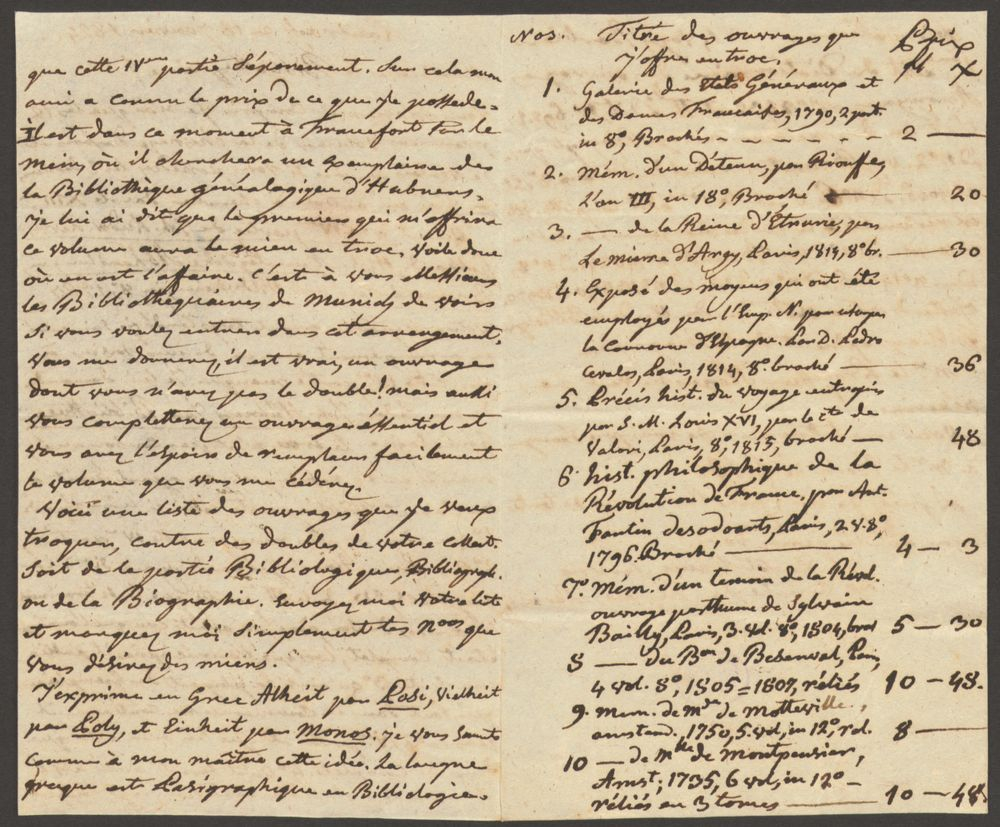 que cette IVme partie séparement. Sur cela mon
ami a connu le prix de ce que je possede.
Il est dans ce moment à Francfort sur le
Mein, où il cherchera un exemplaire de
la Bibliothèque généalogique d'Hubners,
je lui ai dit que le premier qui m'offrira
ce volume aura le mien en troc. Voila donc
où en est l'affaire. C'est à vous Messieurs
les Bibliothequaires de Munich de voir
si vous voulez entrer dans cet arrengement.
Vous me donnerez, il est vrai, un ouvrage
dont vous n'avez pas le double! mais aussi
vous completterez un ouvrage éssentiel et
vous avez l'espoir de remplacer facilement
le volume que vous me cédérez.
Voici une liste des ouvrages que je veux
troquer, contre des doubles de votre collect.
soit de la partie Bibliologique, Bibliograph.
ou de la Biographie. Envoyez moi votre liste
et marquez moi simplement les Nros que
vous désirez des miens.
J'exprime en Grec Alheit par Pasi, Vielheit
par Poly, et Einheit par Monos. Je vous
comme à mon maître cette idée. La langue
greque est Pasigraphique en Bibliologie.
Nos. Titre des ouvrages que Prix
j'offre en troc. fl X
1. Galerie des Etats Généraux et
des Dames Francaises, 1790, 2 part.
in 8°, Brochés - - - - - 2 —
2. Mém. d'un Détenu, par Riouffe,
L'an III, in 18°, Broché — 20
3. — de la Reine d'Etrurie, par
Lemierre d'Argy, Paris, 1814, 8° br. — 30
4. Exposé des moyens qui ont été
employés par l'Emp. N. pour usurper
la couronne d'Espagne. Par D. Pedro
Cevalos, Paris 1814, 8°. broché — 36
5. Précis hist. du voyage entrepris
par S. M. Louis XVI, par le cte de
Valori, Paris, 8°, 1815, broché — 48
6. hist. philosophique de la
Révolution de France, par Ant.
Fantin desodoards, Paris, 2 v. 8°,
1796. Broché — 4 — 3
7. Mém. d'un temoin de la Révol.
ouvrage posthume de Sylvain
Bailly, Paris, 3. vol. 8°, 1804, broc 5 — 30
8 — du Bon de Besenval, Paris,
4 vol. 8°, 1805=1807, réliés 10 — 48.
9. Mem. de Mde de Motteville,
amsterd., 1750, 5. vol, in 12°, rel. 8 —
10 — de Mlle de Montpensier,
Amst; 1735, 6 vol, in 12°—
réliés en 3 tomes — 10 — 48